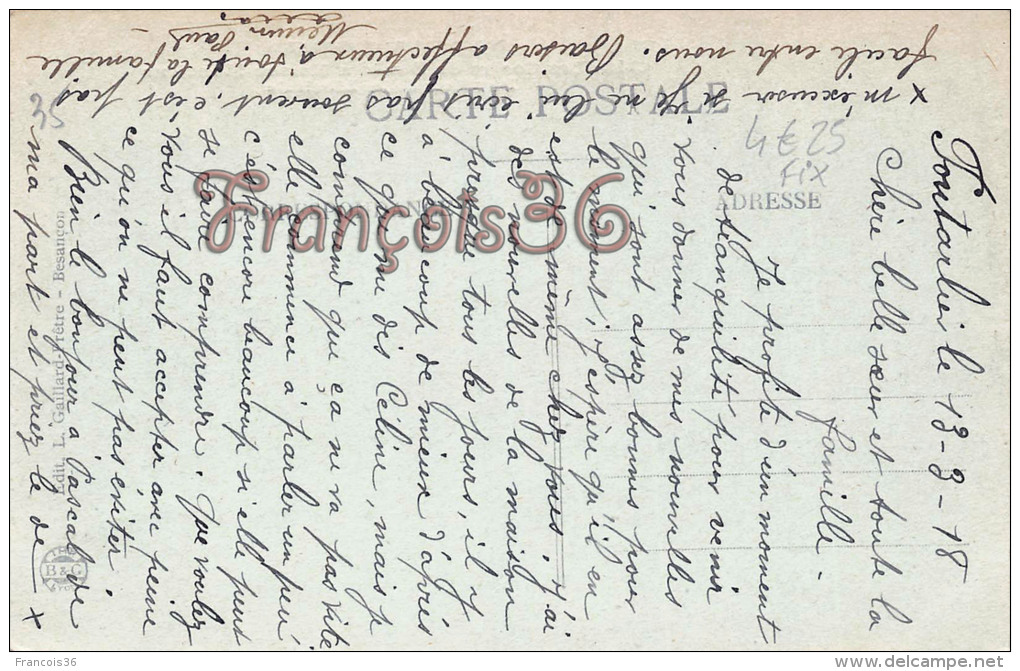 Pontarlier le 13-3-18
Chère belle sœur et toute la
famille -
Je profite d'un moment
de tranquilité pour venir
vous donner de mes nouvelles
qui sont assez bonnes pour
le moment, j'espère qu'il en
est de même chez vous. J'ai
des nouvelles de la maison
presque tous les jours, il y
a beaucoup de mieux d'après
ce que me dis Céline, mais je
comprend que ça ne va pas vite
elle commence à parler un peu
c'est encore beaucoup si elle peut
se faire comprendre. Que voulez
vous il faut accepter avec peine
ce qu'on ne peut pas éviter.
Bien le bonjour à Pascal de
ma part et priez le de x
x m'excuser si je ne lui écris pas souvent, c'est pas
facile entre nous. Baisers affectueux à toute la famille
Paul -
CARTE POSTALE
ADRESSE
Edit. L. Gaillard-Prêtre - Besançon
B&G
35
4€25
Fix
François36
Francois36
delcampe.net